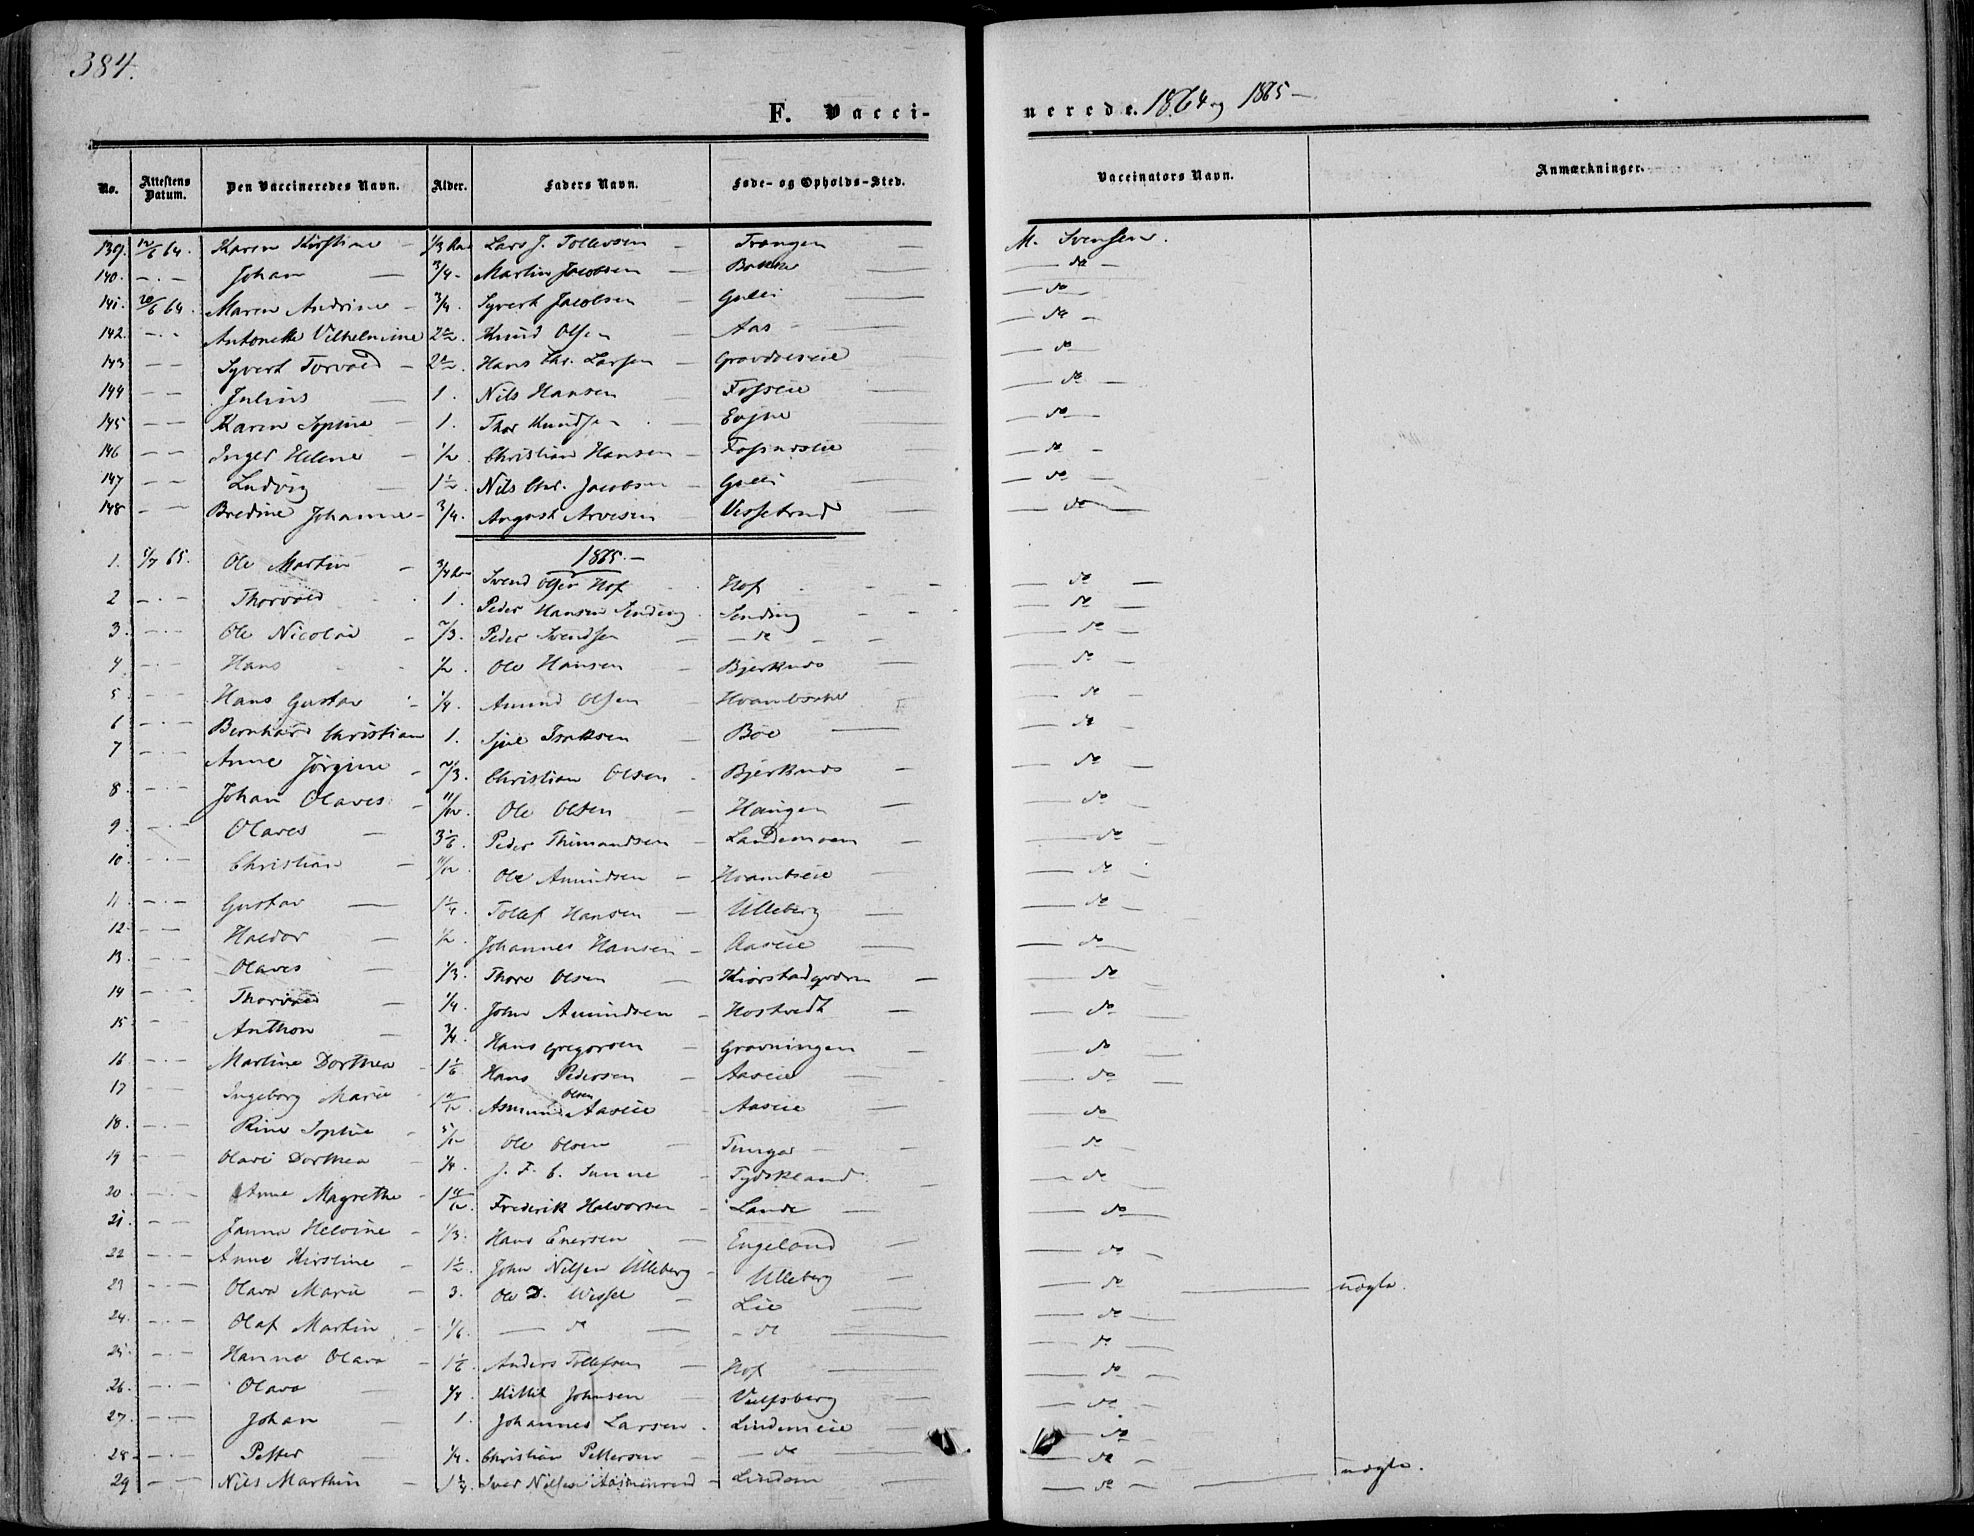 384.
F. Vacci-
nerede. 1864 og 1865 —
No. Attestens Datum. Den Vaccineredes Navn. Alder. Faders Navn. Føde- og Opholds-Sted. Vaccinators Navn. Anmærkninger.
139. 12/6 64. Karen Kirstine — 1/3 Lars J. Tollevsen — Trangen — M. Svensen.
140. — · — Johan — 3/4. Martin Jacobsen — Bakke — — do —
141. 20/6 64. Maren Andrine — 3/4. Syvert Jacobsen — — do
142. — · — Antonette Vilhelmine Knud Olsen — Aas — — do —
143 — — Syvert Torvald — Hans Chr. Larsen — — do —
144 — — Julius — 1. Nils Hansen — Fosseie — — do —
145 — — Karen Sophie — 1. Thor Knudsen — — do —
146 — — Inger Helene — 1/2 Christian Hansen — — do —
147 — — Ludvig — 1 1/2. Nils Chr. Jacobsen — — do —
148 — — Bredine Johanne — 3/4. August Arvesen — — do —
1865. —
1. 5/7 65. Ole Martin — 3/4 Svend Olsen Hof Hof — — do —
2 — · — Thorvald 1. Peder Hansen Sending Sending — — do —
3. — · — Ole Nicolai — 2/3. Peder Svendsen — — do — — do —
4 — · — Hans 1/2 Ole Hansen — Bjerknæs — — do —
5 — · — Hans Gustav — 1/4. Amund Olsen — — do —
6 — · — Bernhard Christian 1. Isaksen — Böe — — do —
7 — · — Anne Jörgine — 2/3. Christian Olsen Bjerknæs — — do —
8 — · — Johan Olaves — 11/12. Ole Olsen — Haugen — — do —
9 — · — Olaves — 3 1/6 Peder Thimandsen — Landemoen — — do —
10 — · — Christian — 11/12 Ole Amundsen — — do —
11. — · — Gustav — 1 1/4. Tollef Hansen — Ulleberg — — do —
12 — · — Haldor — 1/2 Johannes Hansen — Aaseie — — do —
13 — · — Olaves — 1/3. Thore Olsen — — do —
14 — · — Thorvald — 1/4. John Amundsen — Hostvedt — — do —
15 — · — Anthon — 3/4. Hans Gregorsen — Gravningen — — do —
16 — · — Martine Dorthea — 1 1/6 Hans Pedersen — Aaseie — — do —
17 — · — Ingeborg Marie — Asmund Olsen Aaseie — Aaseie — — do —
18. — · — Sophie — 5/12 Ole Olsen — — do —
19 — · — Dorthea — 1/4. J. F. C. — Tydskland — — do —
20 — · — Anne Magrethe — Frederik Halvorsen — Lande — — do —
21 — · — Janna Helvine — 1/3. Hans Enersen — Engeland — — do —
22 — · — Anne Kirstine — 1 1/2 John Nilsen Ulleberg — Ulleberg — — do —
23 — · — Olava Marie — 3. Ole D. Wissel — Lie — — do — uægte.
24. — · — Olaf Martin — 1/6. — do — — do — — do —
25. — · — Hanna Olava — 1 1/6 Anders Tollefsen — Hof — — do —
26. — · — Olava — Kittil Johnsen — Vulfsberg — — do —
27. — · — Johan — 1. Johannes Larsen — Lindemeie — — do —
28 — · — Petter — 1/4. Christian Pettersen — — do — — do —
29 — — Nils Marthin — 1 3/4 Iver Nilsen — Lindom — — do — uægte.